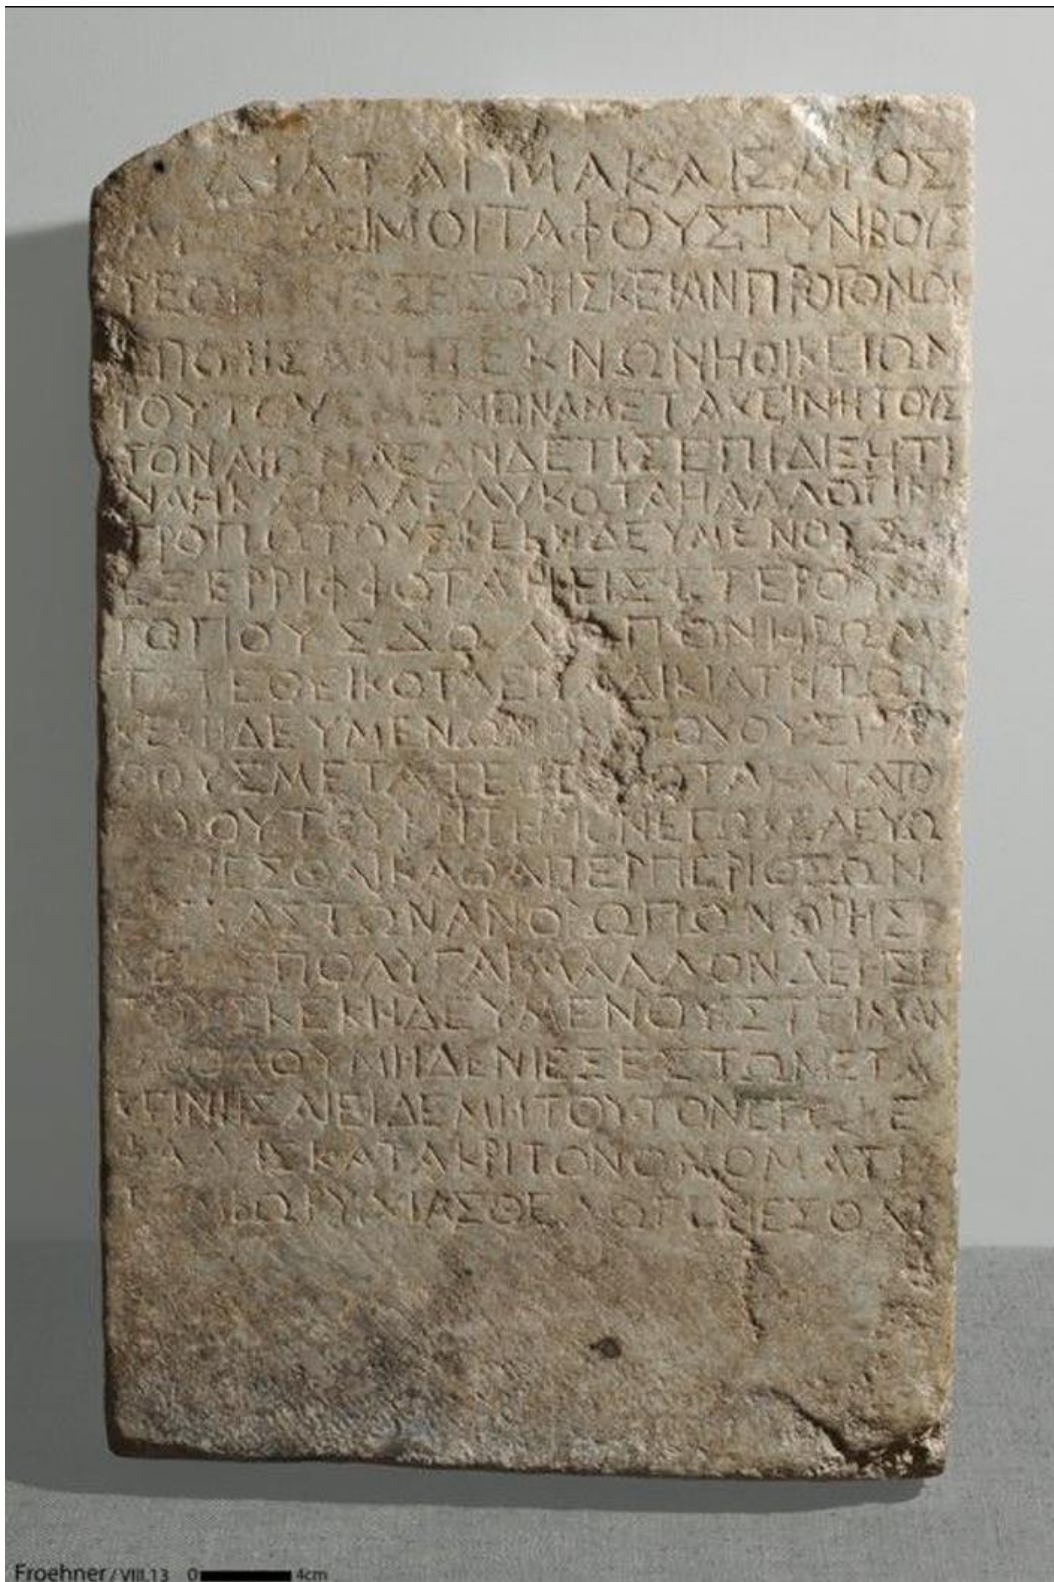 ΔΙΑΤΑΓΜΑ ΚΑΙΣΑΡΟΣ
ΑΡΕΣΚΕΙ ΜΟΙ ΤΑΦΟΥΣ ΤΥΝΒΟΥΣ
ΤΕ ΟΙΤΙΝΕΣ ΕΙΣ ΘΡΗΣΚΕΙΑΝ ΠΡΟΓΟΝΩΝ
ΕΠΟΙΗΣΑΝ Η ΤΕΚΝΩΝ Η ΟΙΚΕΙΩΝ
ΤΟΥΤΟΥΣ ΜΕΝΕΙΝ ΑΜΕΤΑΚΕΙΝΗΤΟΥΣ
ΤΟΝ ΑΙΩΝΑ ΕΑΝ ΔΕ ΤΙΣ ΕΠΙΔΙΞΗ ΤΙ
ΝΑ Η ΚΑΤΑΛΕΛΥΚΟΤΑ Η ΑΛΛΩ ΤΙΝΙ
ΤΡΟΠΩ ΤΟΥΣ ΚΕΚΗΔΕΥΜΕΝΟΥΣ
ΕΞΕΡΡΙΦΦΟΤΑ Η ΕΙΣ ΕΤΕΡΟΥΣ
ΤΟΠΟΥΣ ΔΩΛΩ ΠΟΝΗΡΩ ΜΕ
ΤΑΤΕΘΕΙΚΟΤΑ ΕΠ ΑΔΙΚΙΑ ΤΗ ΤΩΝ
ΚΕΚΗΔΕΥΜΕΝΩΝ Η ΚΑΤΟΧΟΥΣ Η ΛΙ
ΘΟΥΣ ΜΕΤΑΤΕΘΕΙΚΟΤΑ ΚΑΤΑ ΤΟΥ
ΤΟΙΟΥΤΟΥ ΚΡΙΤΗΡΙΟΝ ΕΓΩ ΚΕΛΕΥΩ
ΓΕΝΕΣΘΑΙ ΚΑΘΑΠΕΡ ΠΕΡΙ ΘΕΩΝ
ΕΙΣ ΤΑΣ ΤΩΝ ΑΝΘΡΩΠΩΝ ΘΡΗΣ
ΚΙΑΣ ΠΟΛΥ ΓΑΡ ΜΑΛΛΟΝ ΔΕΗΣΕΙ
ΤΟΥΣ ΚΕΚΗΔΕΥΜΕΝΟΥΣ ΤΕΙΜΑΝ
ΚΑΘΟΛΟΥ ΜΗΔΕΝΙ ΕΞΕΣΤΩ ΜΕΤΑ
ΚΕΙΝΗΣΑΙ ΕΙ ΔΕ ΜΗ ΤΟΥΤΟΝ ΕΓΩ ΚΕ
ΦΑΛΗΣ ΚΑΤΑΚΡΙΤΟΝ ΟΝΟΜΑΤΙ
ΤΥΜΒΩΡΥΧΙΑΣ ΘΕΛΩ ΓΕΝΕΣΘΑΙ
Froehner / VIII.13 0 4cm